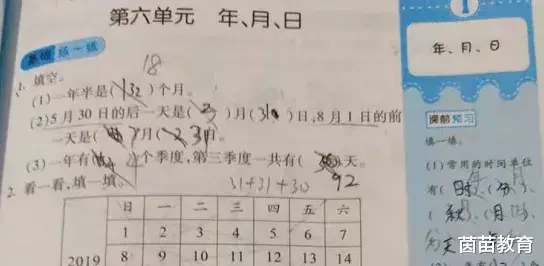 第六单元 年、月、日
基础练一练
18
1. 填空。
(1)一年半是( )个月。
(2)5月30日的后一天是(5)月(31)日,8月1日的前
一天是( )月( 31)日。
(3)一年有( 4)个季度,第三季度一共有( )天。
31+31+30 92
2. 看一看,填一填。
日 一 二 三 四 五 六
1 2 3 4 5 6 7
2019 8 9 10 11 12 13 14
1
年、月、日
课前预习
填一填。
年 月
(1)常用的时间单位
有(日)、(分)、
(秋)、(月)、
天
茵苗教育